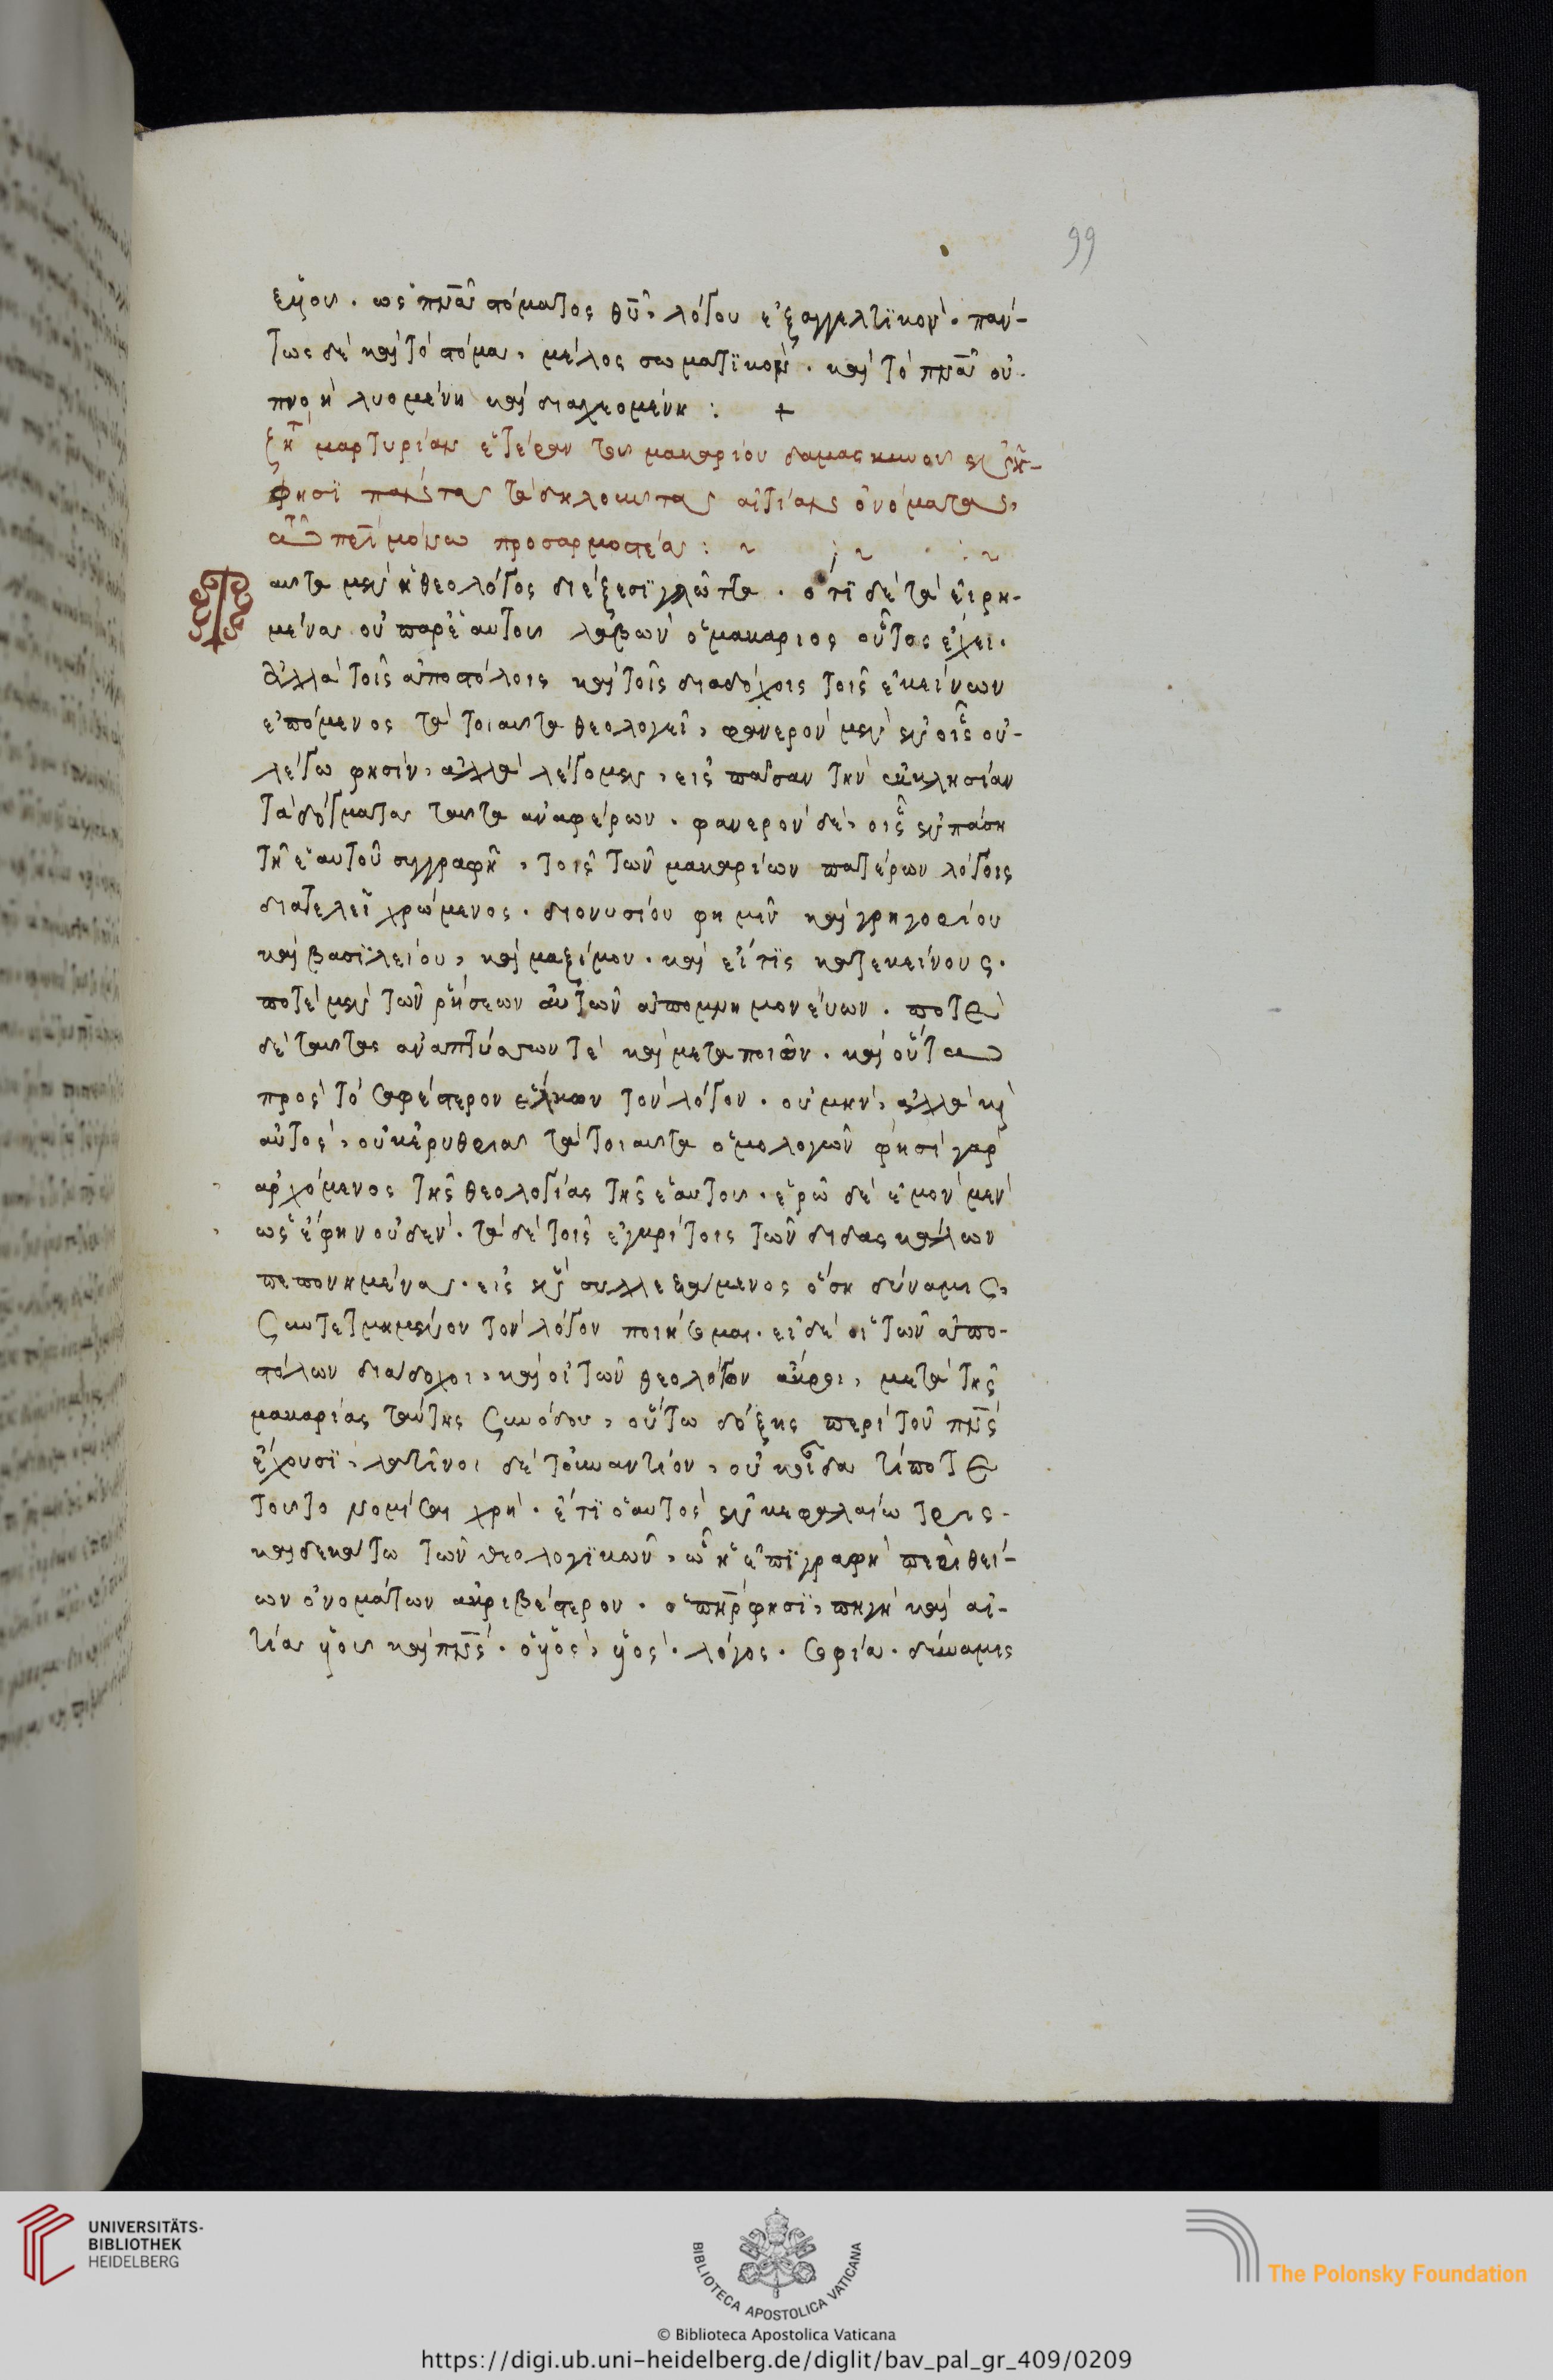 99
ὡς π̅ν̅α̅ στόματος θ̅υ̅, λόγου ἐξαγγελτϊκόν. παν-
τως δὲ καὶ τὸ στόμα, μέλος σωματϊκόν. καὶ τὸ π̅ν̅α̅ οὐ
πνοὴ λυομένη καὶ διαχεομένη : +
μαρτυρίαν ἑτέραν του μακαρίου δαμασκηνου
φησϊ πάντα τὰ δηλουντα αἰτίαν ὀνόματα,
τῶ π̅ρ̅ι̅ μόνω προσαρμοστέα :
αυτα μὲν ἡ θεολόγος διέξεσϊ γλῶττα . ὅτϊ δὲ τὰ εἰρη-
μένα οὐ παρ' ἑαυτου λαβὼν ὁ μακαριος οὗτος ἔχει.
ἀλλὰ τοῖς ἀποστόλοις καὶ τοῖς διαδόχοις τοῖς ἐκείνων
ἑπόμενος τὰ τοιαυτα θεολογεῖ, φανερὸν μὲν ἐν οἷς οὐ
λέγω φησὶν, ἀλλὰ λέγομεν, εἰς πᾶσαν τὴν ἐκκλησίαν
τὰ δόγματα ταυτα ἀναφέρων . φανερὸν δὲ, οἷς ἐν πάση
τῆ ἑαυτοῦ συγγραφῆ, τοῖς τῶν μακαρίων πατέρων λόγοις
διατελεῖ χρώμενος . διονυσίου φημὶ καὶ γρηγορίου
καὶ βασϊλείου, καὶ μαξίμου . καὶ εἴ τϊς κατ' ἐκείνους.
ποτὲ μὲν τῶν ῥήσεων αὐτῶν ἀπομνημονεύων . ποτὲ
δὲ ταυτας ἀναπτύσσων τὲ καὶ μεταποιῶν . καὶ οὕτω
πρὸς τὸ σαφέστερον ἕλκων τὸν λόγον . οὐ μὴν, ἀλλὰ κ
αὐτὸς, οὐκ ἐρυθρια τὰ τοιαυτα ὁμολογῶν φησὶ γὰρ
ἀρχόμενος τῆς θεολογίας τῆς ἑαυτου . ἐρῶ δὲ ἐμὸν μὲν
ὡς ἔφην οὐδέν . τὰ δὲ τοῖς ἐγκρίτοις τῶν διδασκάλων
πεπονημένα . εἰς ἓν συλλεξάμενος ὅση δύναμις,
συντετμημένον τὸν λόγον ποιήσομαι . εἰ δὲ οἱ τῶν ἀπο-
στόλων διάδοχοι, καὶ οἱ τῶν θεολόγων ἄκροι, μετὰ τῆς
μακαρίας ταύτης συνόδου, οὕτω δόξης περὶ τοῦ π̅ν̅ς̅
ἔχουσϊ, λατῖνοι δὲ τοὐναντίον, οὐκ οἶδα τί ποτε
τουτο νομίσαι χρή . ἔτϊ ὁ αὐτὸς ἐν κεφαλαίω τρις-
καιδεκάτω τῶν θεολογϊκῶν, ὧ ἡ ἐπϊγραφὴ περὶ θεί-
ων ὀνομάτων ἀκριβέστερον . ὁ π̅η̅ρ̅ φησϊ, πηγὴ καὶ αἰ-
τία ὑ̅ου καὶ π̅ν̅ς̅ . ὁ ὑ̅ος, ὑ̅ος . λόγος . σοφία . δύναμις
UNIVERSITÄTS-
BIBLIOTHEK
HEIDELBERG
BIBLIOTECA APOSTOLICA VATICANA
The Polonsky Foundation
© Biblioteca Apostolica Vaticana
https://digi.ub.uni-heidelberg.de/diglit/bav_pal_gr_409/0209